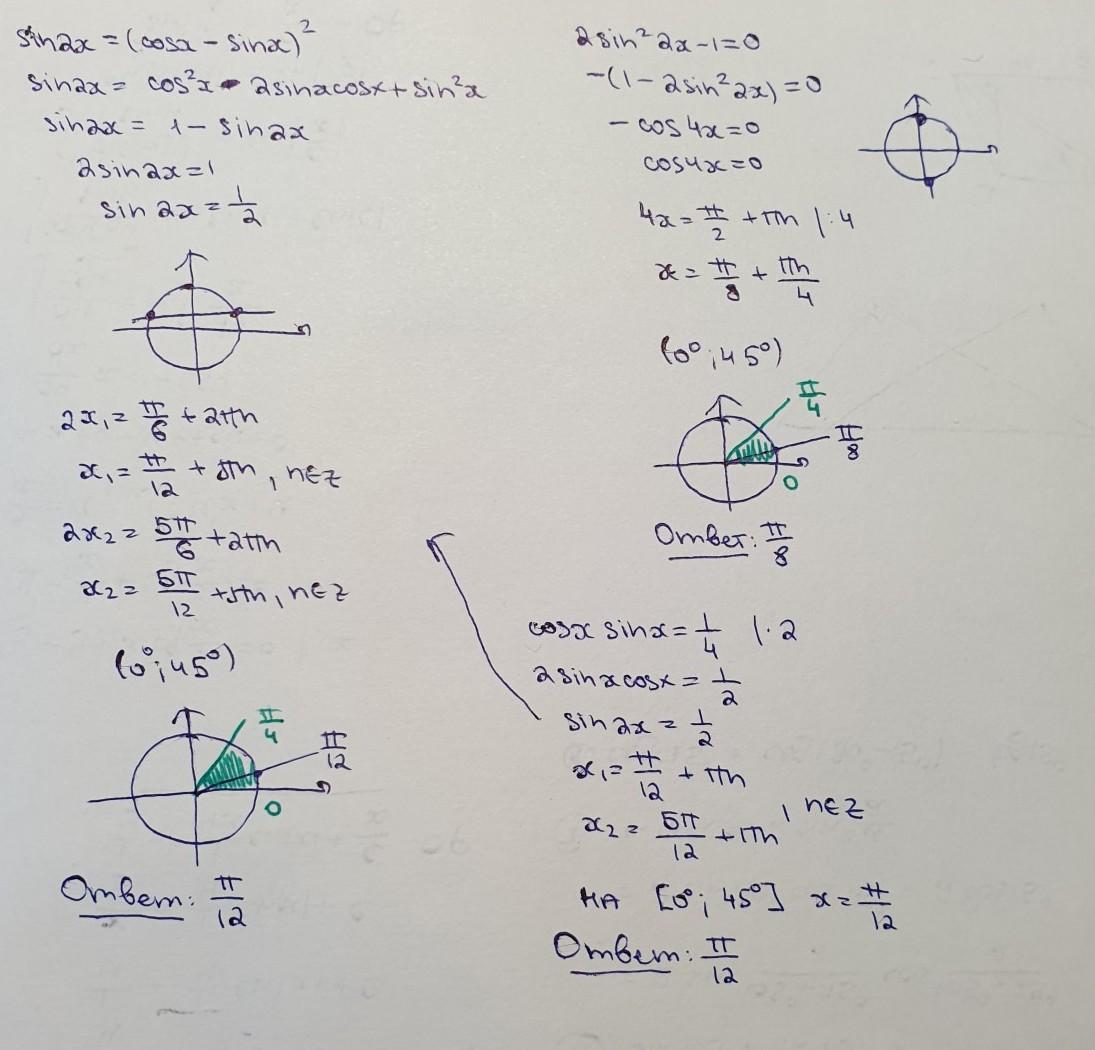 sin2x = (cosx - sinx)²
sin2x = cos²x - 2sinxcosx + sin²x
sin2x = 1 - sin2x
2sin2x = 1
sin 2x = 1/2
2x₁ = π/6 + 2πn
x₁ = π/12 + πn, n∈Z
2x₂ = 5π/6 + 2πn
x₂ = 5π/12 + πn, n∈Z
(0°; 45°)
π/4
π/12
0
Ответ: π/12
2sin²2x - 1 = 0
-(1 - 2sin²2x) = 0
- cos4x = 0
cos4x = 0
4x = π/2 + πn |:4
x = π/8 + πn/4
(0°; 45°)
π/4
π/8
0
Ответ: π/8
cosx sinx = 1/4 |·2
2sinxcosx = 1/2
sin2x = 1/2
x₁ = π/12 + πn
x₂ = 5π/12 + πn, n∈Z
НА [0°; 45°] x = π/12
Ответ: π/12